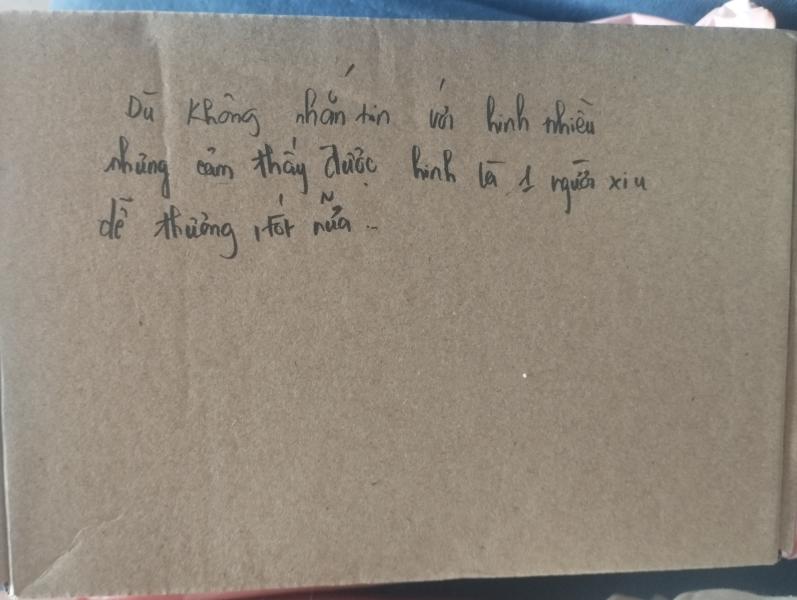 Dù không nhắn tin với hình nhiều
nhưng cảm thấy được hình là 1 người xỉu
dễ thương, tốt nữa..